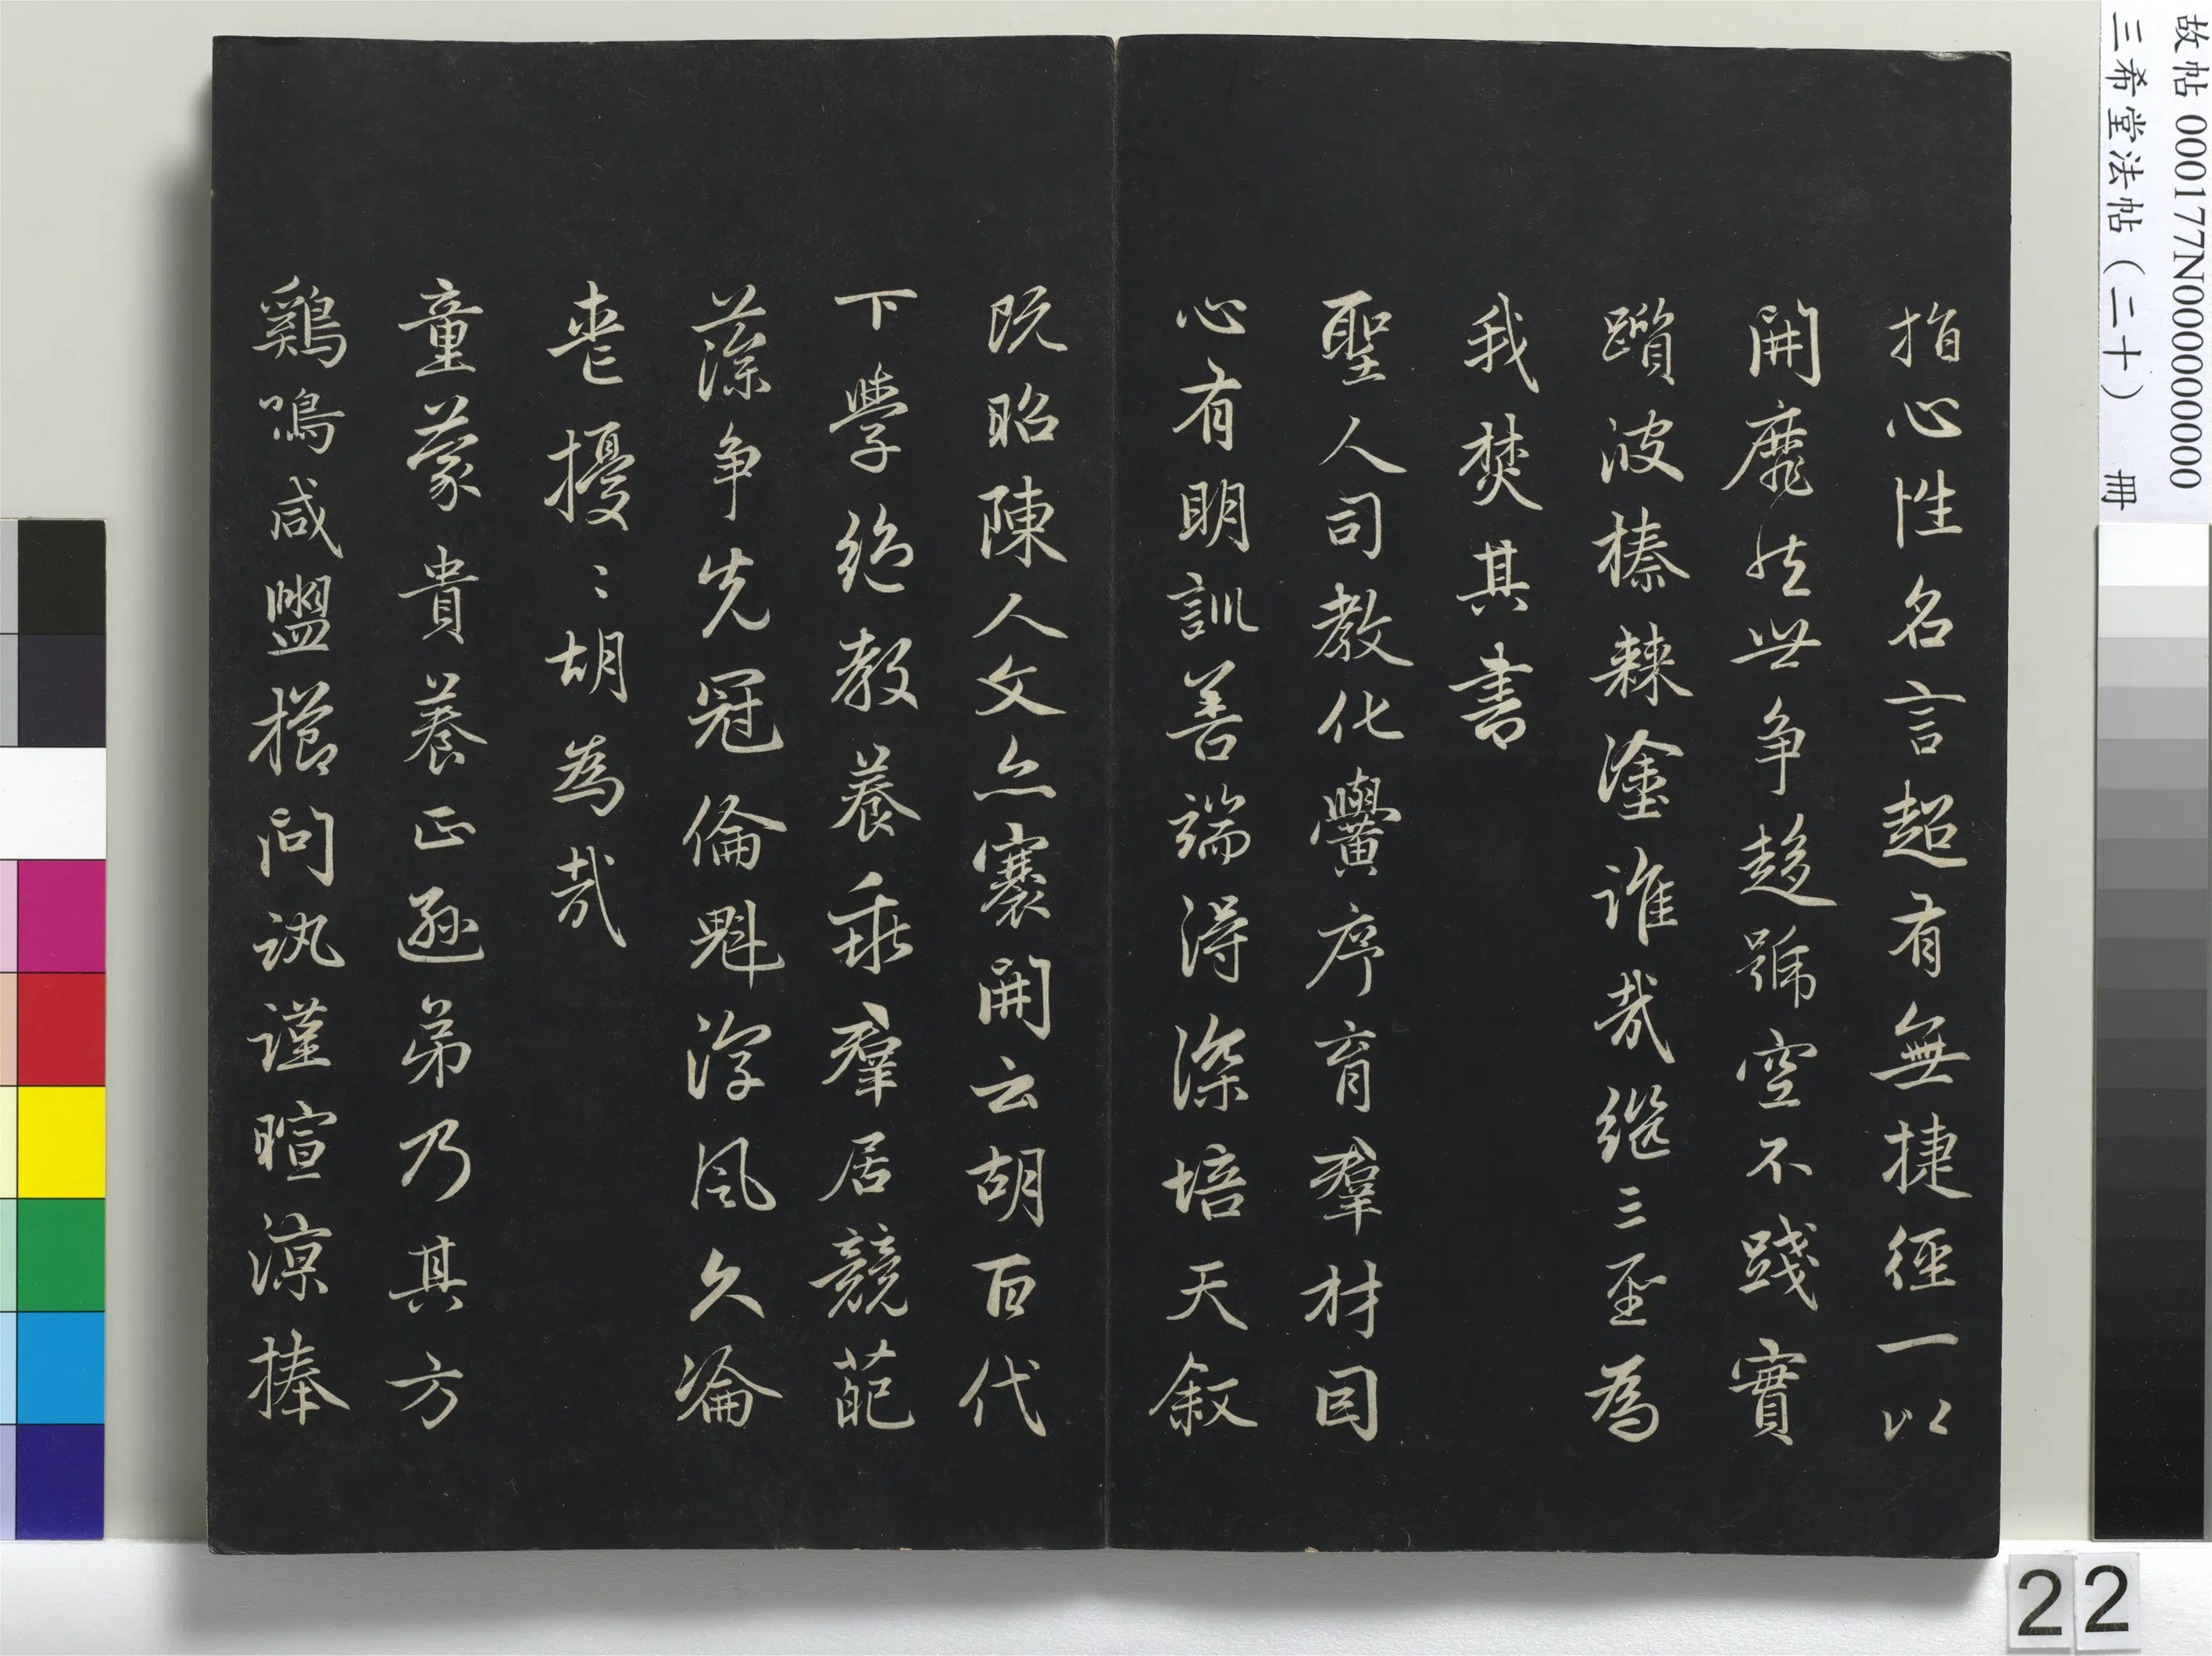 指心性名言超有無捷徑一以
開靡然世争趍號空不踐實
躓彼榛棘塗誰哉継三聖為
我焚其書
聖人司教化黌序育羣材因
心有明訓善端得深培天叙
既昭陳人文亦褰開云胡百代
下學絶教養乖羣居競葩
藻争先冠倫魁淳風久淪
喪擾〻胡為哉
童蒙貴養正遜弟乃其方
鷄鳴咸盥櫛問訊謹暄涼捧
故帖 000177N000000000
三希堂法帖（二十） 冊
22